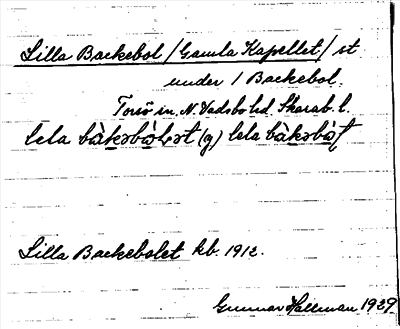 Lilla Backebol / Gamla Kapellet / st
under 1 Backebol.
Torsö sn. N. Vadsbo hd. Skarab. l.
lela bàkəbòlət (g) lela bàkəbòt
Lilla Backebolet kb. 1912.
Gunnar Hallman 1929